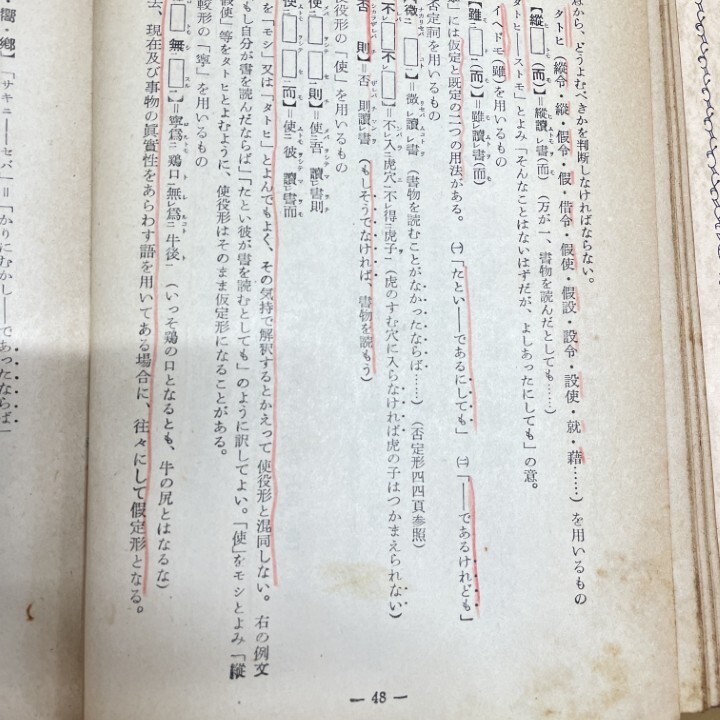 意から、どうよむべきかを判断しなければならない。
タトヒ（縱令・縱・假令・假・借令・假使・假設・設令・設使・就・藉……）を用いるもの
【縱□（而）】＝縱讀レ書（而）（万が一、書物を読んだとしても……）
「タトヒ——ストモ」とよみ「そんなことはないはずだが、よしあったにしても」の意。
イヘドモ（雖）を用いるもの
【雖□（而）】＝雖レ讀レ書（而）
」には仮定と既定の二つの用法がある。㈠「たとい——であるにしても」㈡「——であるけれども」
否定詞を用いるもの
【微□】＝微レ讀レ書（書物を読むことがなかったならば……）（否定形四四頁参照）
【不□不□】＝不レ入二虎穴一不レ得二虎子一（虎のすむ穴に入らなければ虎の子はつかまえられない）
【否則】＝否、則讀レ書（もしそうでなければ、書物を読もう）
使役形の「使」を用いるもの
【使□□則】＝使二吾讀一レ書則
【使□□而】＝使二彼讀一レ書而
を「モシ」又は「タトヒ」とよんでもよく、その気持で解釈するとかえって使役形と混同しない。右の例文
もし自分が書を読んだならば」「たとい彼が書を読むとしても」のように訳してよい。「使」をモシとよみ「縱
假使」等をタトヒとよむように、使役形はそのまま仮定形になることがある。
較形の「寧」を用いるもの
□無□】＝寧爲二鶏口一無レ爲二牛後一（いっそ鶏の口となるとも、牛の尻とはなるな）
去、現在及び事物の眞實性をあらわす語を用いてある場合に、往々にして假定形となる。
・嚮・鄕）「サキニ——セバ」＝「かりにむかし——であったならば」
— 48 —